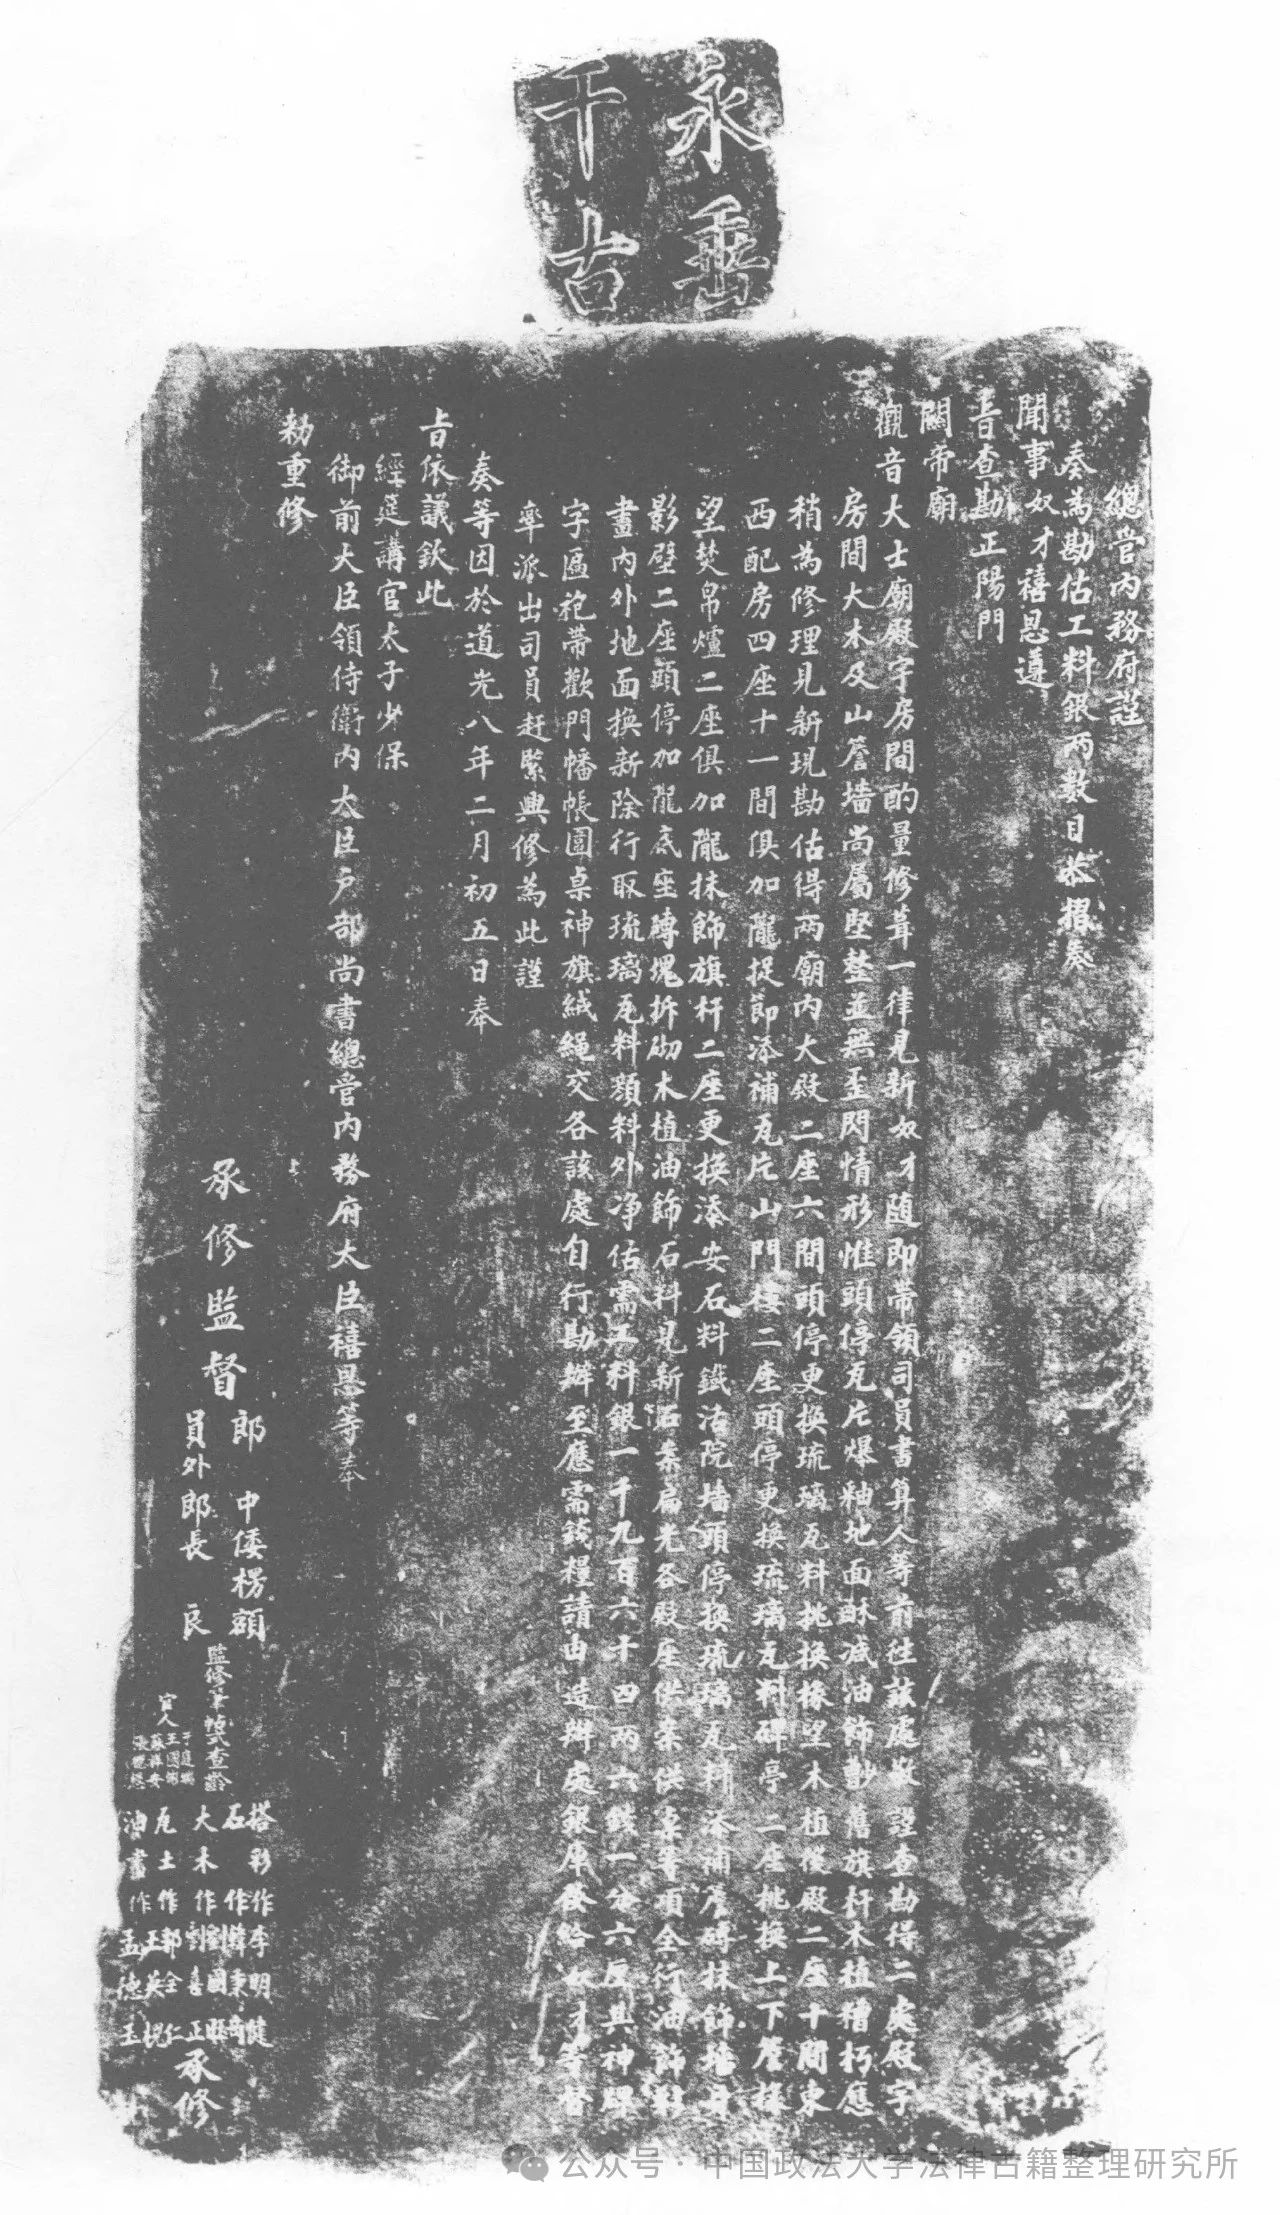 永垂
千古
總管內務府謹
奏為勘估工料銀兩數目恭摺奏
聞事奴才禧恩遵
旨查勘正陽門
關帝廟
觀音大士廟殿宇房間酌量修葺一律見新奴才隨即帶領司員書算人等前往該處敬謹查勘得二處殿宇
房間大木及山簷墻尚屬堅整並無歪閃情形惟頭停瓦片爆釉地面酥減油飾黪舊旗杆木植糟朽應
稍為修理見新現勘估得兩廟內大殿二座六間頭停更換琉璃瓦料挑換椽望木植後殿二座十間東
西配房四座十一間俱加隴捉節添補瓦片山門樓二座頭停更換琉璃瓦料碑亭二座挑換上下簷椽
望焚帛爐二座俱加隴抹飾旗杆二座更換添安石料鐵活院墻頭停換琉璃瓦料添補簷磚抹飾墻身
影壁二座頭停加隴底座磚塊拆砌木植油飾石料見新石案扁光各殿座供案供桌等項全行油飾彩
畫內外地面換新除行取琉璃瓦料顏料外淨估需工料銀一千九百六十四兩六錢一分六厘其神牌
字匾袍帶歡門幡帳圍桌神旗絨繩交各該處自行勘辦至應需錢糧請由造辦處銀庫發給奴才等督
率派出司員赶緊興修為此謹
奏等因於道光八年二月初五日奉
旨依議欽此
經筵講官太子少保
御前大臣領侍衛內大臣戶部尚書總管內務府大臣禧恩等奉
勅重修
承修監督
郎中倭楞額
員外郎長良
監修筆帖式查齡
官人
王國
蘇祥安
搭彩作李明健
石作韓東
劉國
大木作劉喜正
瓦土作郭全仁
王英
油畫作孟德玉
承修
公众号·中国政法大学法律古籍整理研究所